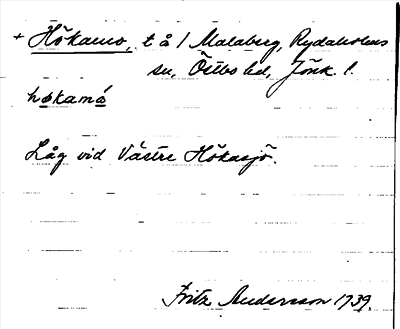 + Hökamo, t å / Malaberg, Rydaholms
sn, Östbo hd, Jönk. l.
høkamå
Låg vid Västre Hökasjö.
Fritz Andersson 1939.